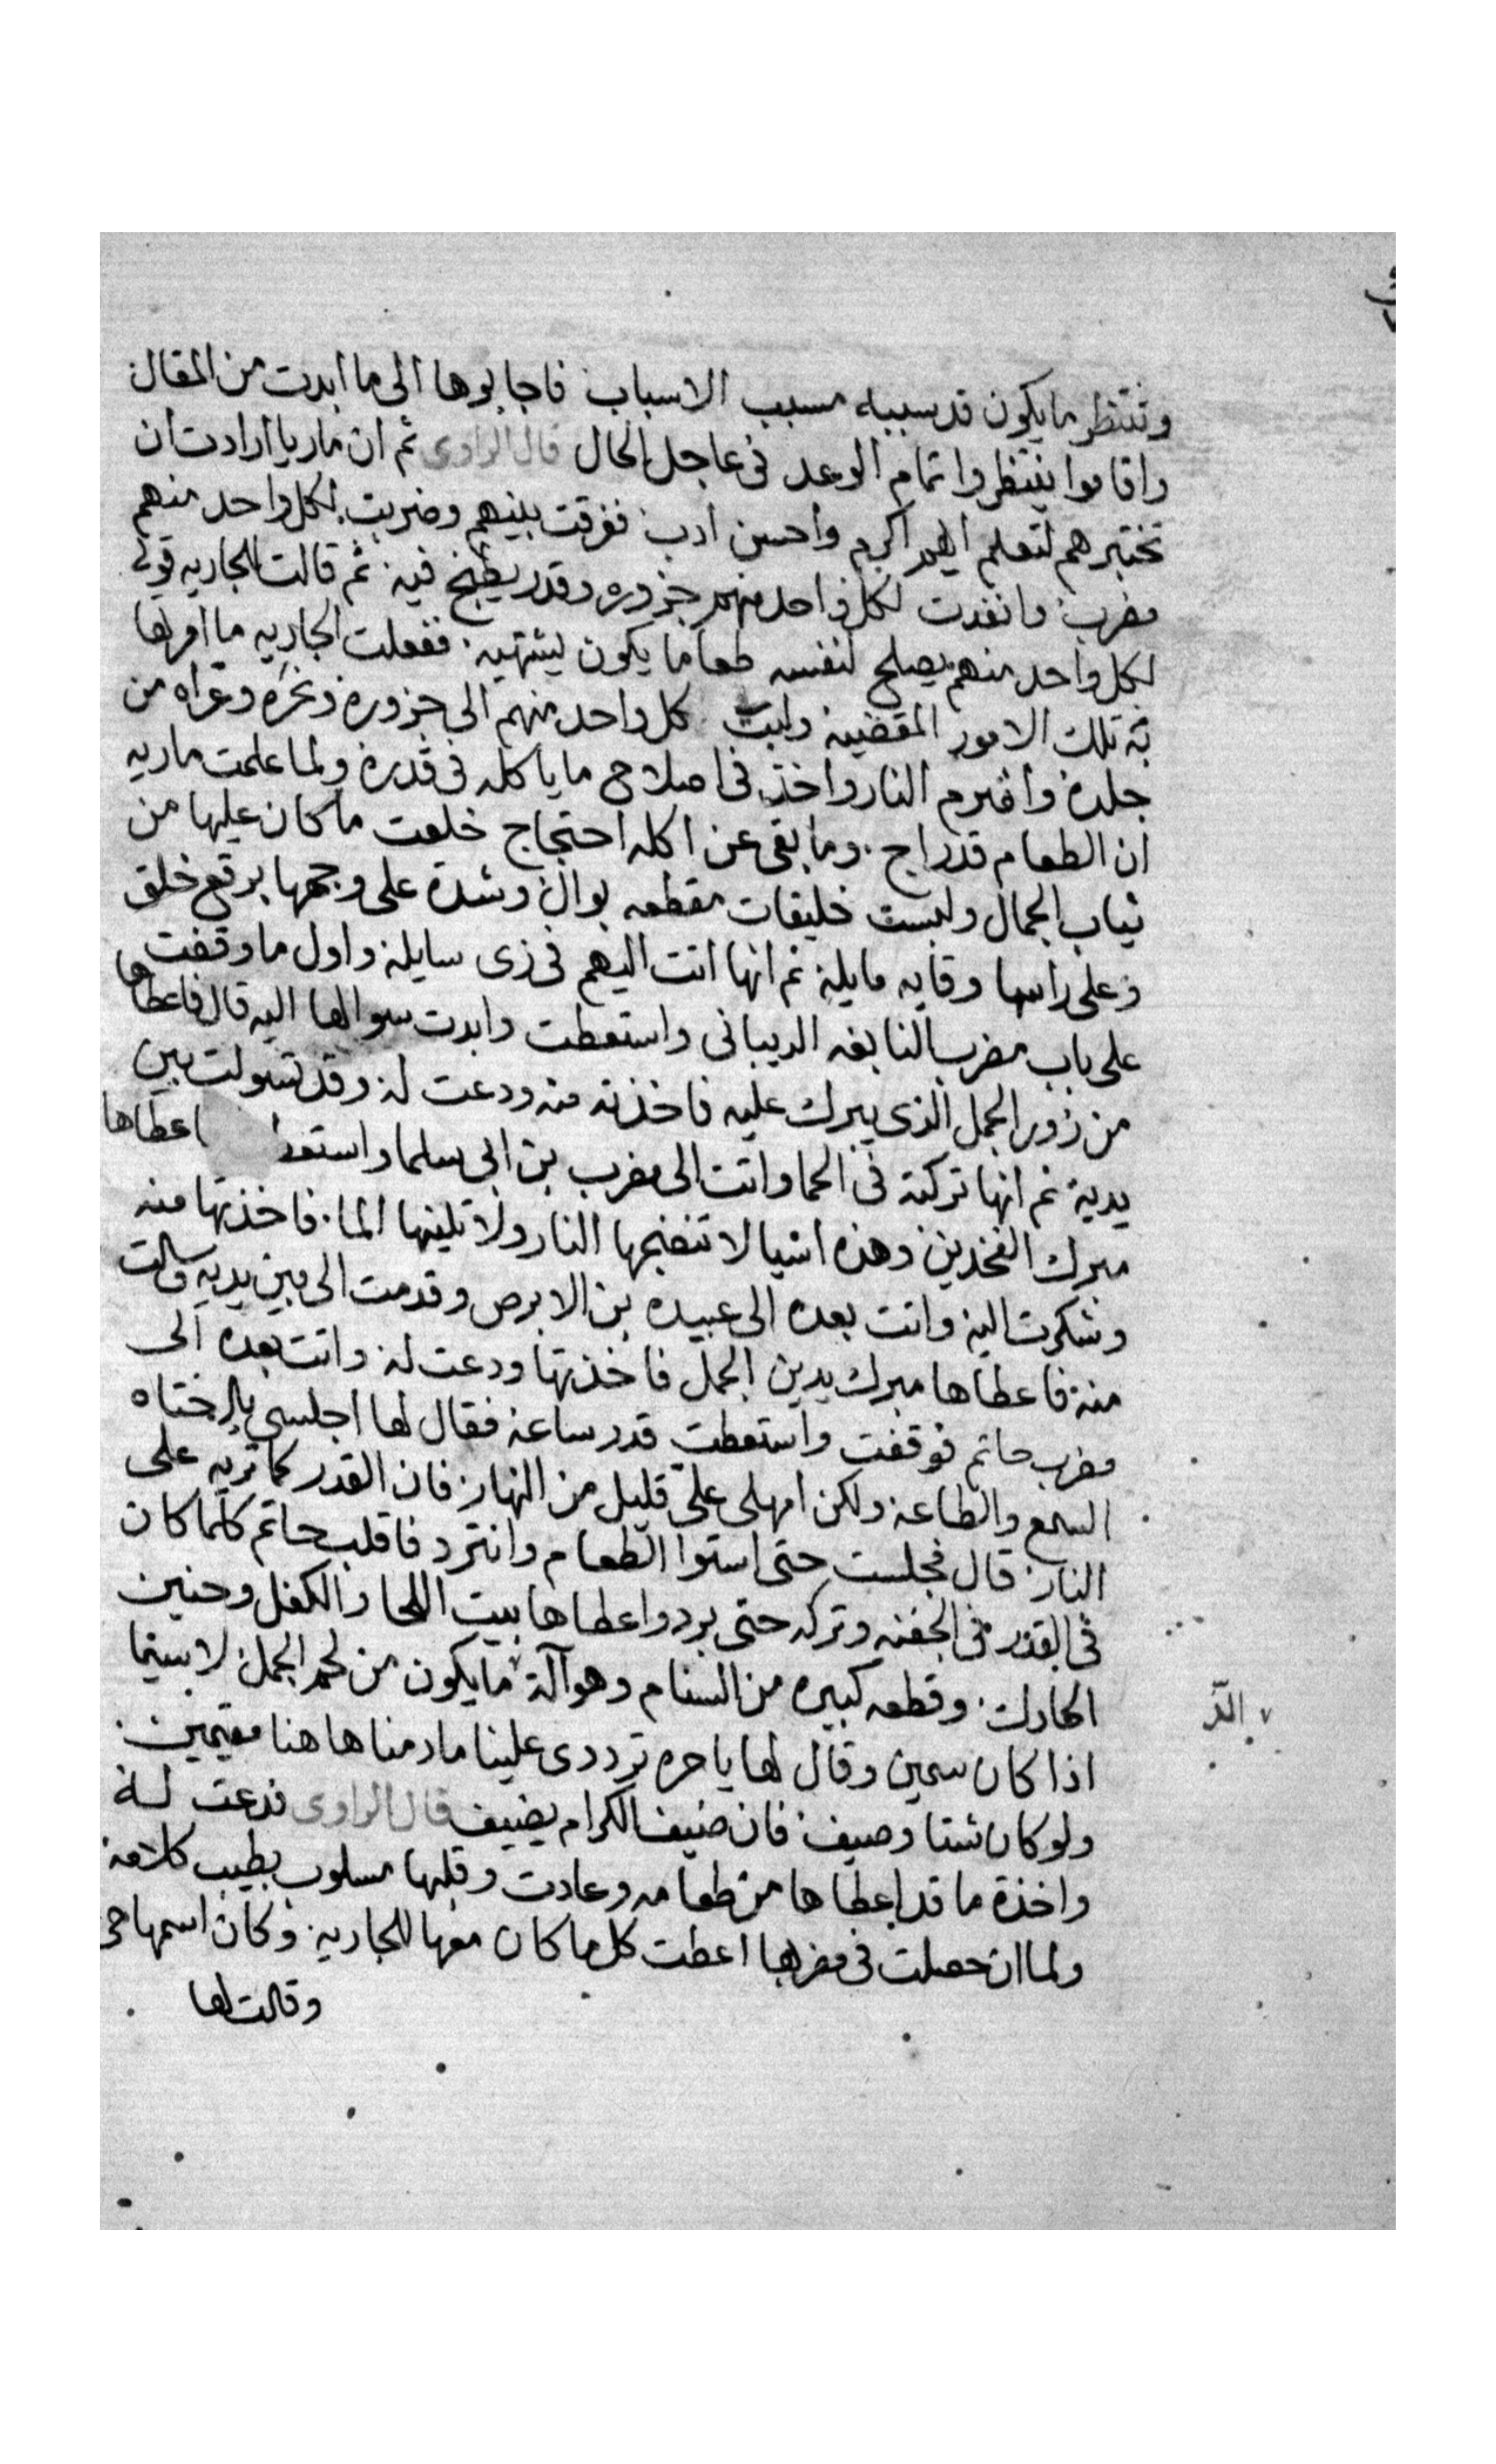 وننتظر ما يكون قد سببه مسبب الاسباب فاجابوها الى ما ابدت من المقال
واقاموا ينتظروا اتمام الوعد فى عاجل الحال قال الراوى ثم ان ماريا ارادت ان
تختبرهم لتعلم ايهم اكرم واحسن ادب ففرقت بينهم وضربت لكل واحد منهم
مضرب وانفدت لكل واحد منهم جزوره وقدر يطبخ فيه ثم قالت للجاريه قولى
لكل واحد منهم يصلح لنفسه طعاما يكون يشتهيه ففعلت الجاريه ما امرتها
به تلك الامور المقضيه كل واحد منهم الى جزوره ونحره وعراه من
جلده واضرم النار واخذ فى اصلاح ما ياكله فى قدره ولما علمت ماريه
ان الطعام قد راج وما بقى عن اكله احتجاج خلعت ما كان عليها من
ثياب الجمال ولبست خليقات مقطعه بوال وشدة على وجهها برقع خلق
وعلى راسها وقايه مايلة ثم انها اتت اليهم فى زى سايله واول ما وقفت
على باب مضرب النابغه الديبانى واستعطت وابدت سوالها اليه قال فاعطاها
من زور الجمل الذى يبرك عليه فاخذته منه ودعت له وقد تسولت بين
يديه ثم انها تركته فى الحما واتت الى مضرب بن ابى سلما واستعط اعطاها
مبرك الفخدين وهذه اشيا لا تنضجها النار ولا تلينها الما فاخذتها منه
وشكرت اليه واتت بعده الى عبيده بن الابرص وقدمت الى بين يديه وسالت
منه فاعطاها مبرك يدين الجمل فاخذتها ودعت له واتت بعده الى
مضرب حاتم فوقفت واستعطت قدر ساعه فقال لها اجلسى يا اختاه
السمع والطاعه ولكن امهلى على قليل من النهار فان القدر كما تريه على
النار قال فجلست حتى استوا الطعام وانترد فاقلب حاتم كلما كان
فى القدر فى الجفنه وتركه حتى برد واعطاها بيت اللحا والكفل وحنين
الحارك وقطعه كبيره من السنام وهو آلة ما يكون من لحم الجمل لا سيما
الدّ
اذا كان سمين وقال لها يا حره ترددى علينا ما دمنا هاهنا مقيمين
ولو كان شتا وصيف فان ضيف الكرام يضيف قال الراوى فدعت له
واخذة ما قد اعطاها من طعامه وعادت وقلبها مسلوب بطيب كلامه
ولما ان حصلت فى مضربها اعطت كل ما كان معها للجاريه وكان اسمها
وقالت لها